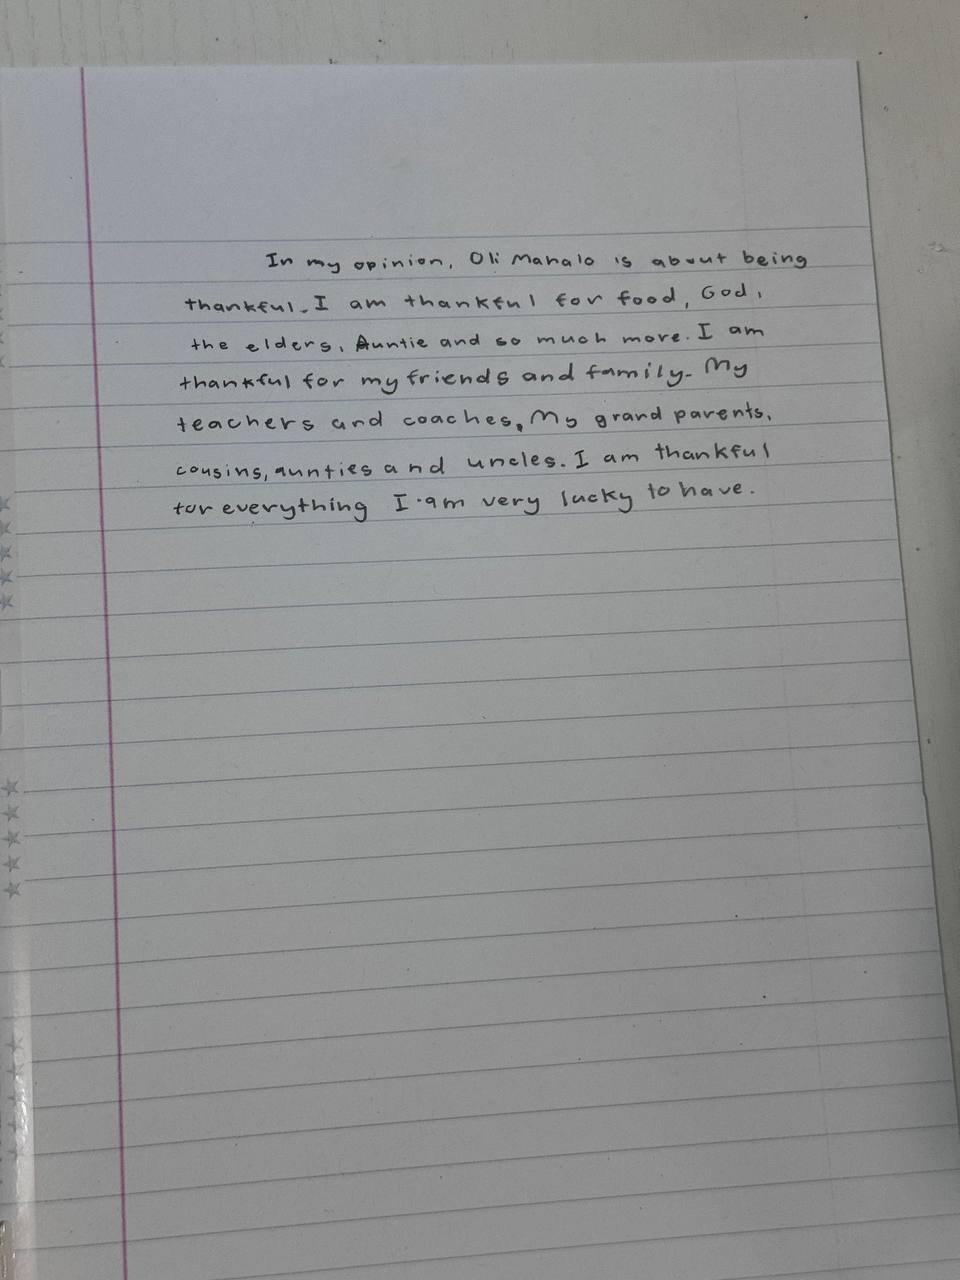 In my opinion, Oli Mahalo is about being
thankful. I am thankful for food, God,
the elders, Auntie and so much more. I am
thankful for my friends and family. My
teachers and coaches, My grand parents,
cousins, aunties and uncles. I am thankful
for everything I am very lucky to have.